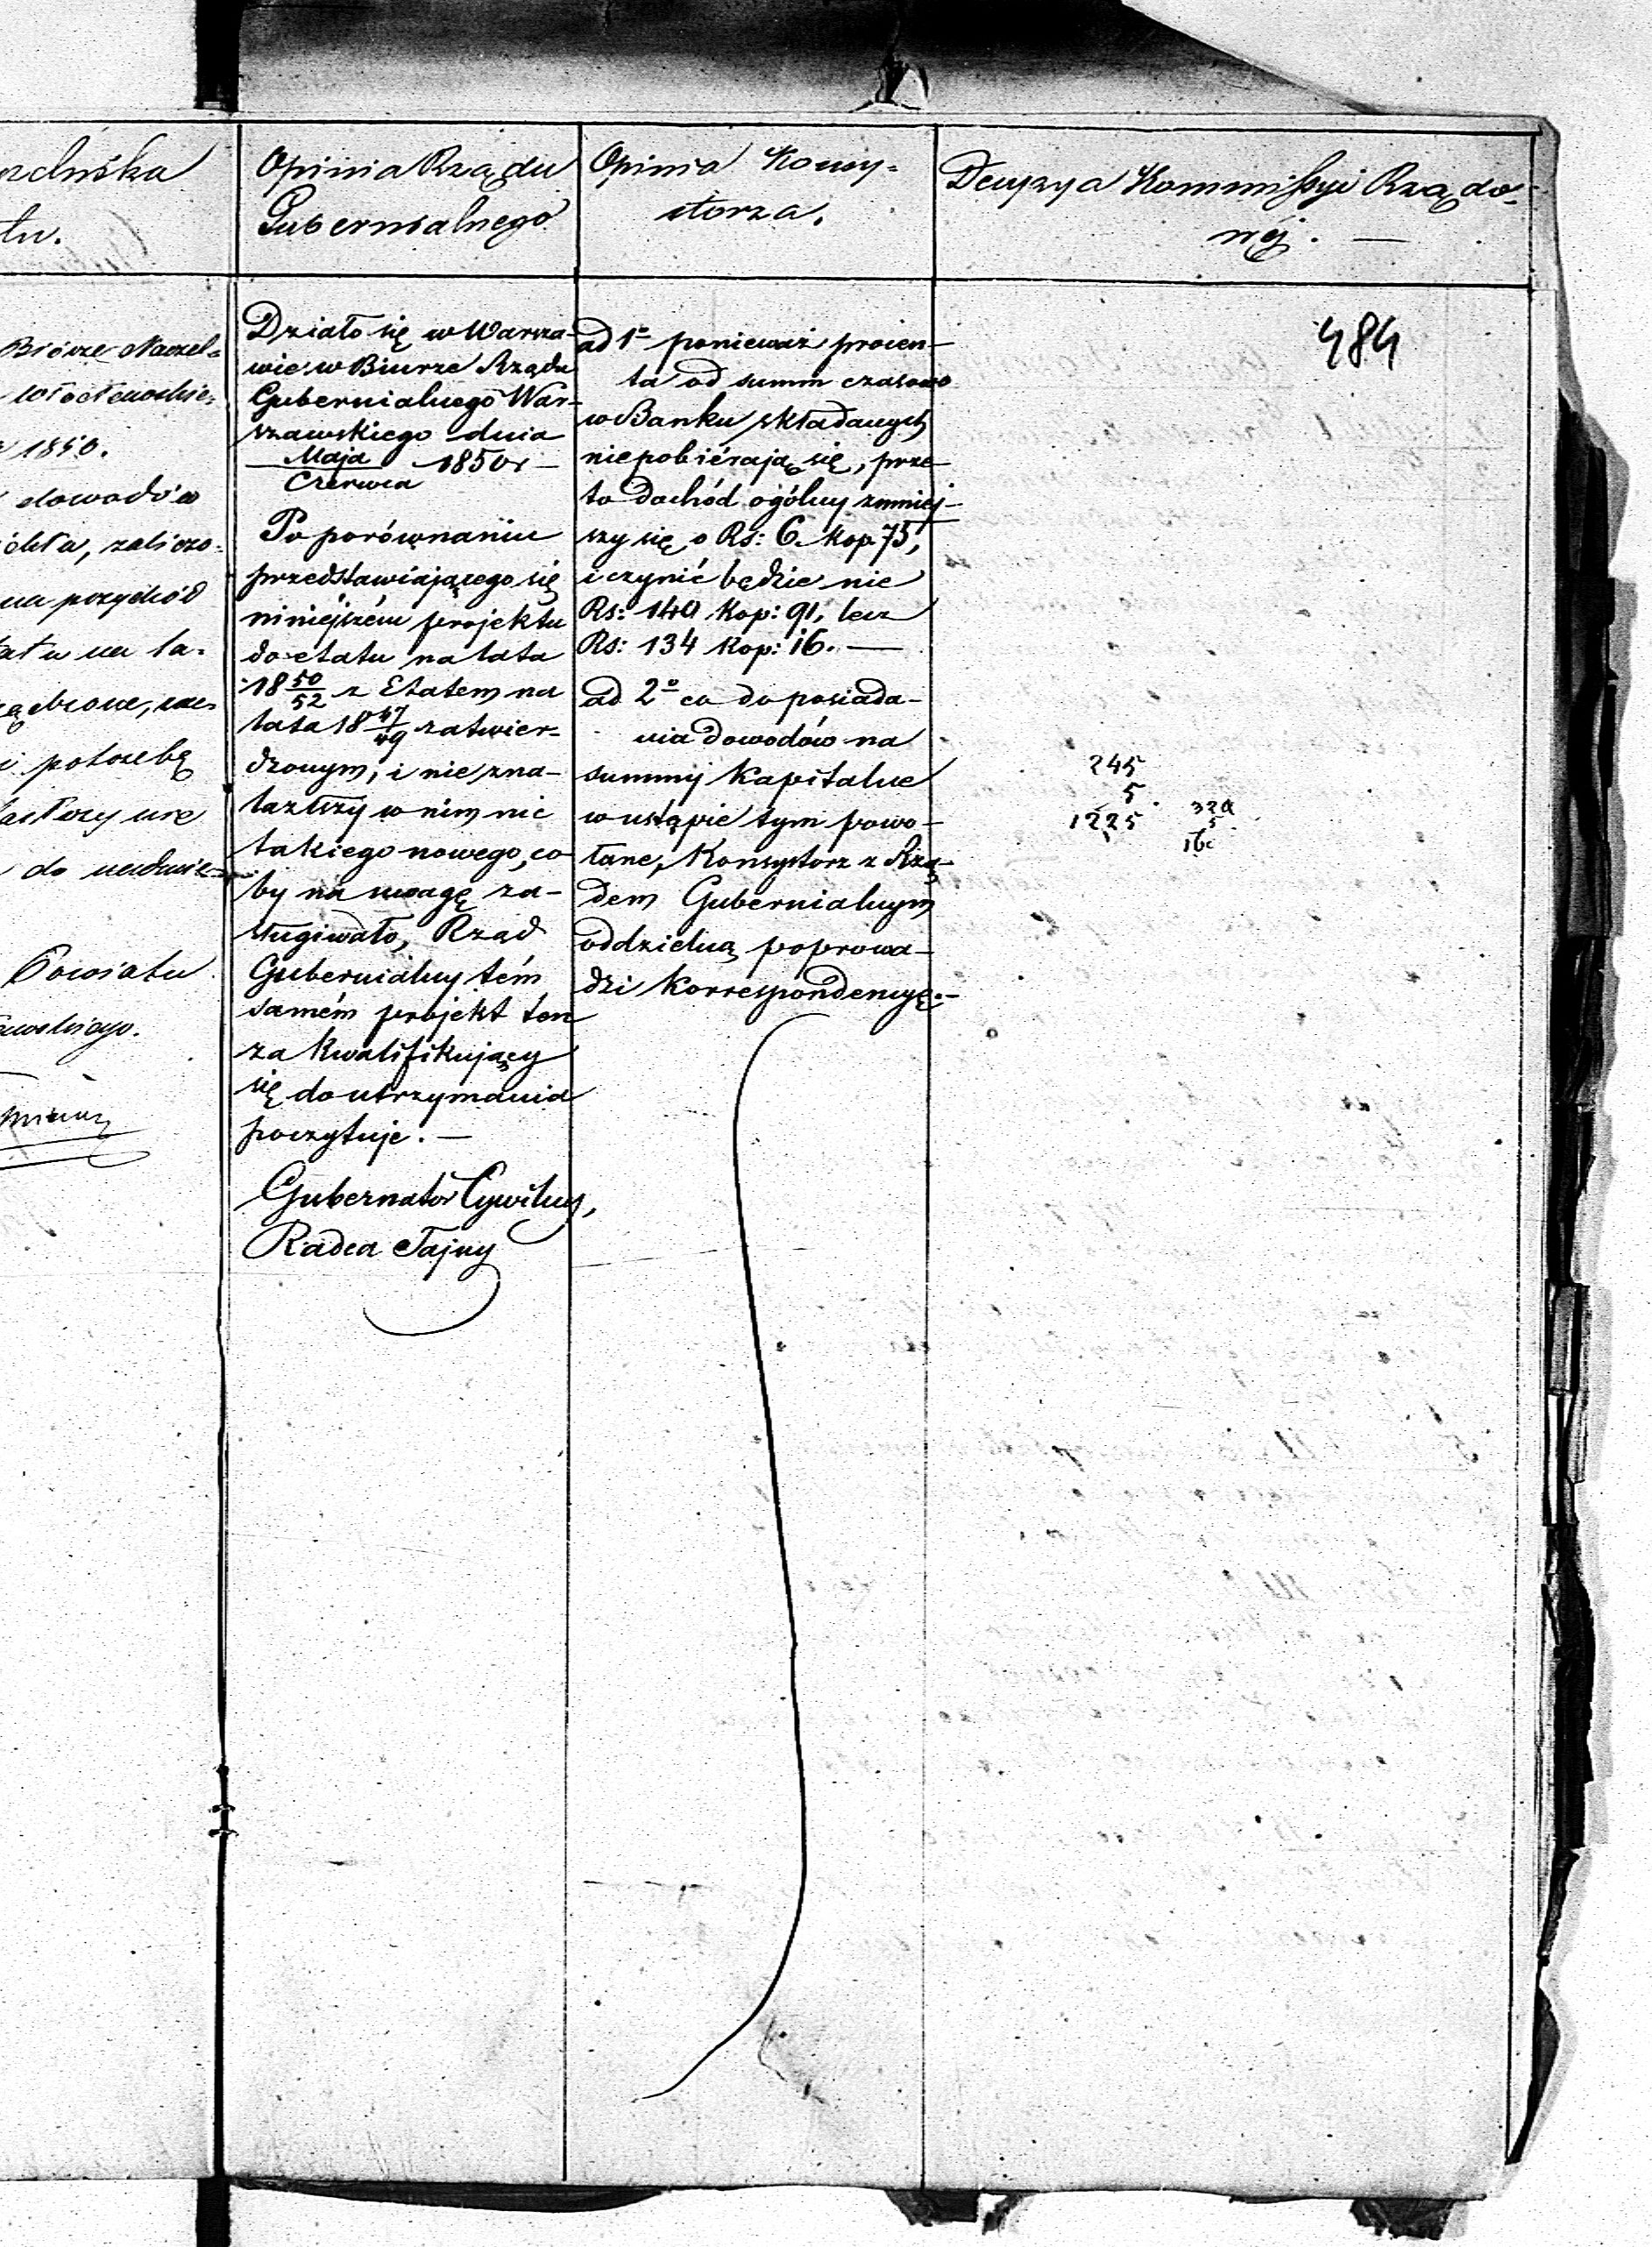 Opinia Rządu
Gubernialnego
Opinia Konsy-
storza.
Decyzya Kommissyi Rządo-
wéj. —
484
Biórze Naczel-
1850.
dowodów
zaliczo-
na przychód
i potrzebę
do
Powiatu
Działo się w Warsza-
wie w Biurze Rządu
Gubernialnego War-
szawskiego dnia
Maja
Czerwca 1850 r —
Po porównaniu
przedstawiającego się
niniejszém projektu
do etatu na lata
18 50/52 z Etatem na
lata 18 47/49 zatwier-
dzonym, i nie zna-
lazłszy w nim nic
takiego nowego, co-
by na uwagę za-
sługiwało, Rząd
Gubernialny tém
samém projekt ten
za kwalifikujący
się do utrzymania
poczytuje. —
Gubernator Cywilny,
Radca Tajny
ad 1º ponieważ procen-
ta od summ czasowo
w Banku składanych
niepobiérają się, prze-
to dochód ogólny zmniej-
szy się o Rs: 6. kop 75,
i czynić będzie nie
Rs: 140 Kop: 91, lecz
Rs: 134 kop: 16. —
ad 2º co do posiada-
nia dowodów na
summy Kapitalne
w ustąpie tym powo-
łane, Konsystorz z Rzą-
dem Gubernialnym
oddzielną poprowa-
dzi Korrespondencyę. —
245
5
1225
320
5